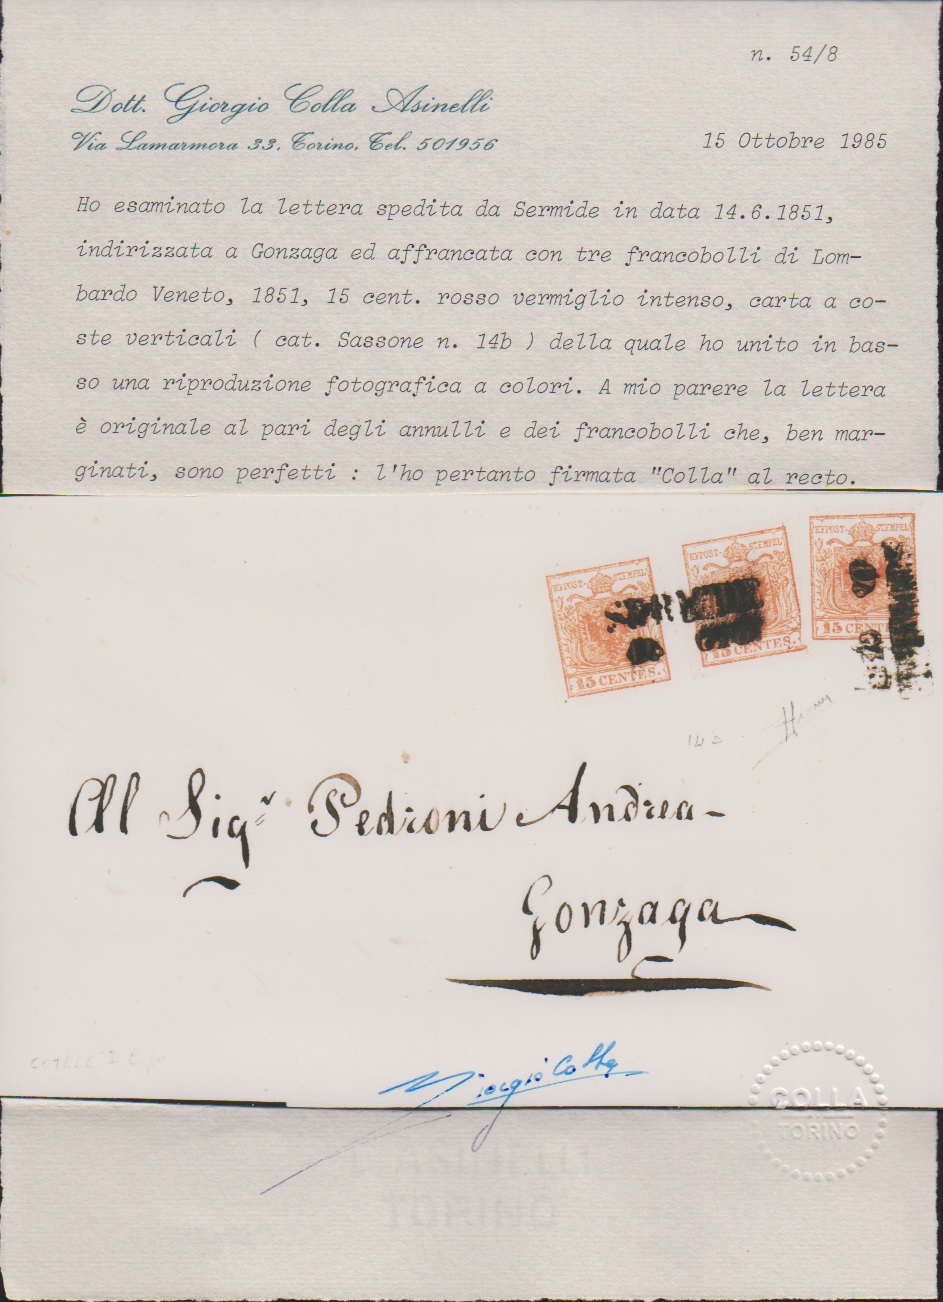 n. 54/8
Dott. Giorgio Colla Asinelli
Via Lamarmora 33, Torino, Tel. 501956
15 Ottobre 1985
Ho esaminato la lettera spedita da Sermide in data 14.6.1851,
indirizzata a Gonzaga ed affrancata con tre francobolli di Lom-
bardo Veneto, 1851, 15 cent. rosso vermiglio intenso, carta a co-
ste verticali ( cat. Sassone n. 14b ) della quale ho unito in bas-
so una riproduzione fotografica a colori. A mio parere la lettera
è originale al pari degli annulli e dei francobolli che, ben mar-
ginati, sono perfetti : l'ho pertanto firmata "Colla" al recto.
KKPOST-STEMPEL
KKPOST-STEMPEL
KKPOST-STEMPEL
SERMIDE
15 CENTES.
15 CENTES.
15 CENTES.
14 b
Al Sigr Pedroni Andrea-
Gonzaga
COTELÉ I tipo
Giorgio Colla
COLLA
TORINO
ASINELLI
TORINO